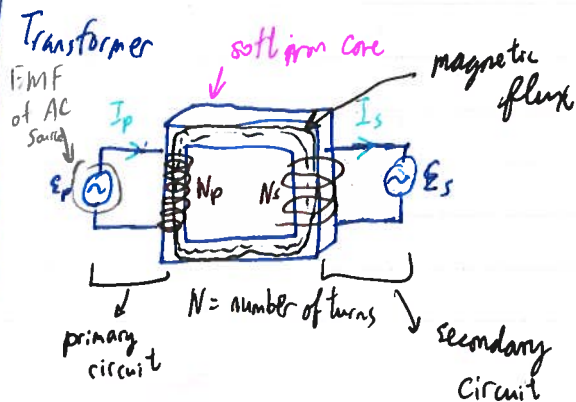 Transformer
soft iron core
magnetic
flux
EMF
of AC
source
Ip
Is
εp
Np
Ns
εs
N = number of turns
primary
circuit
secondary
circuit